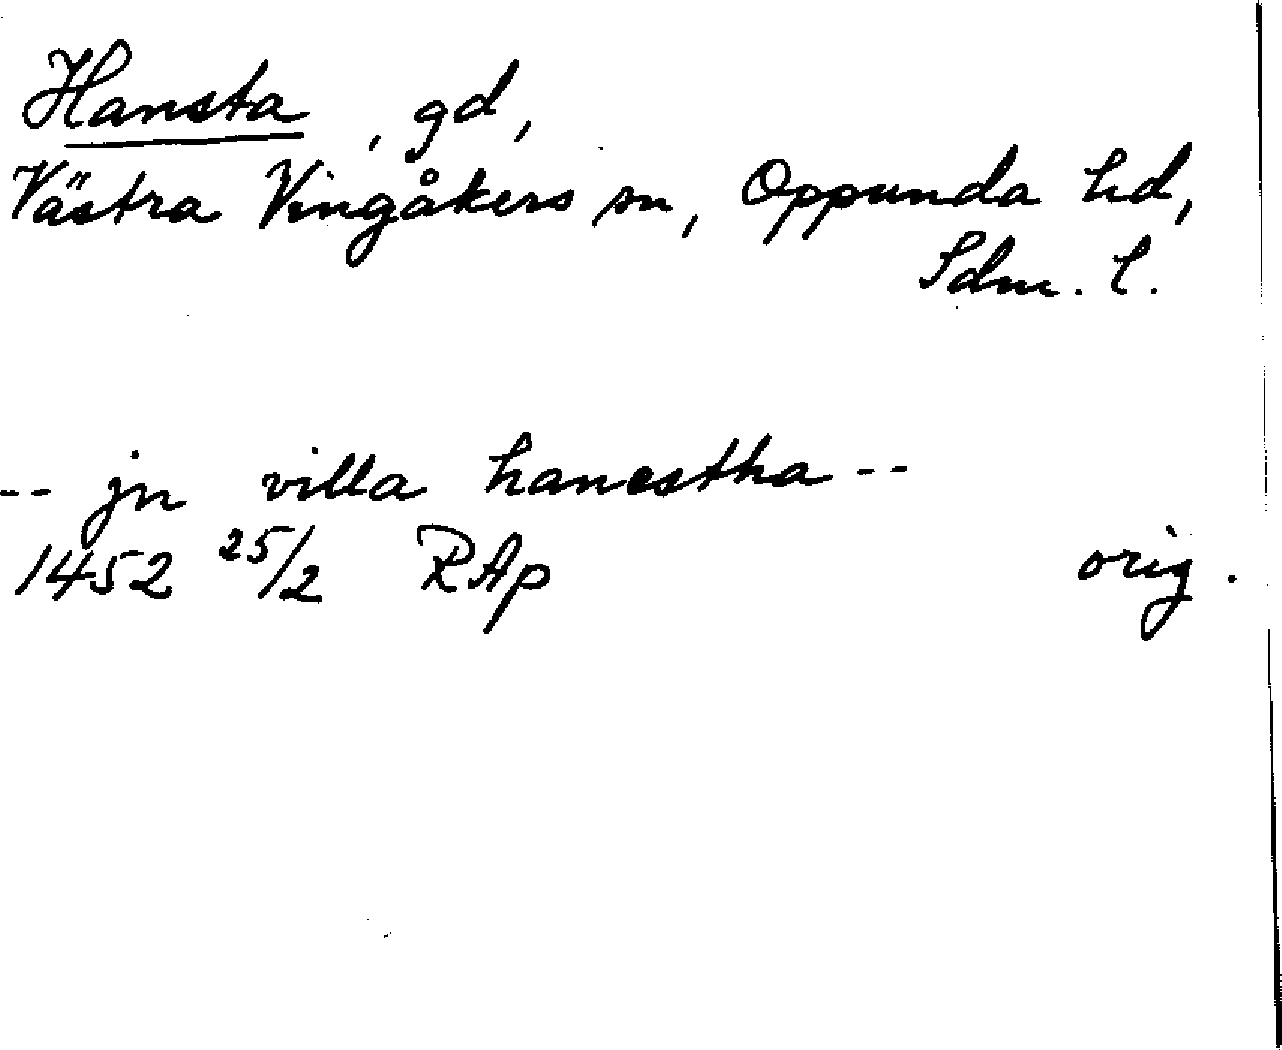 Hansta, gd,
Västra Vingåkers sn, Oppunda hd,
Sdm. l.
-- jn villa hanestha --
1452 25/2 RAp orig.